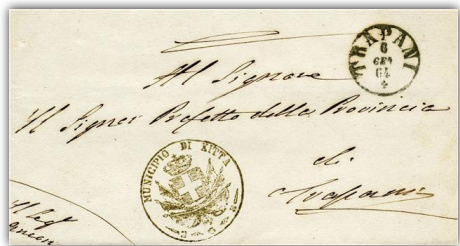 TRAPANI
6
GEN
64
4
Al Signore
Il Signor Prefetto della Provincia
di
Trapani
MUNICIPIO DI XITTA
Il